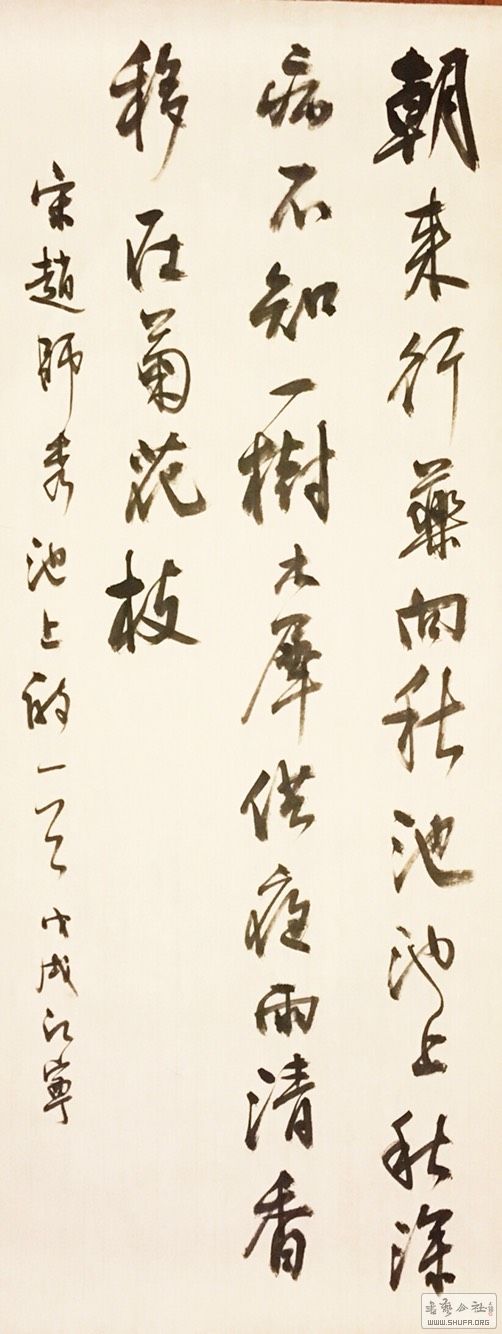 朝来行藥向秋池池上秋深
病不知一樹木犀供夜雨清香
移在菊花枝
宋趙師秀池上的一首戊戌江寧
書藝公社
WWW.SHUFA.ORG